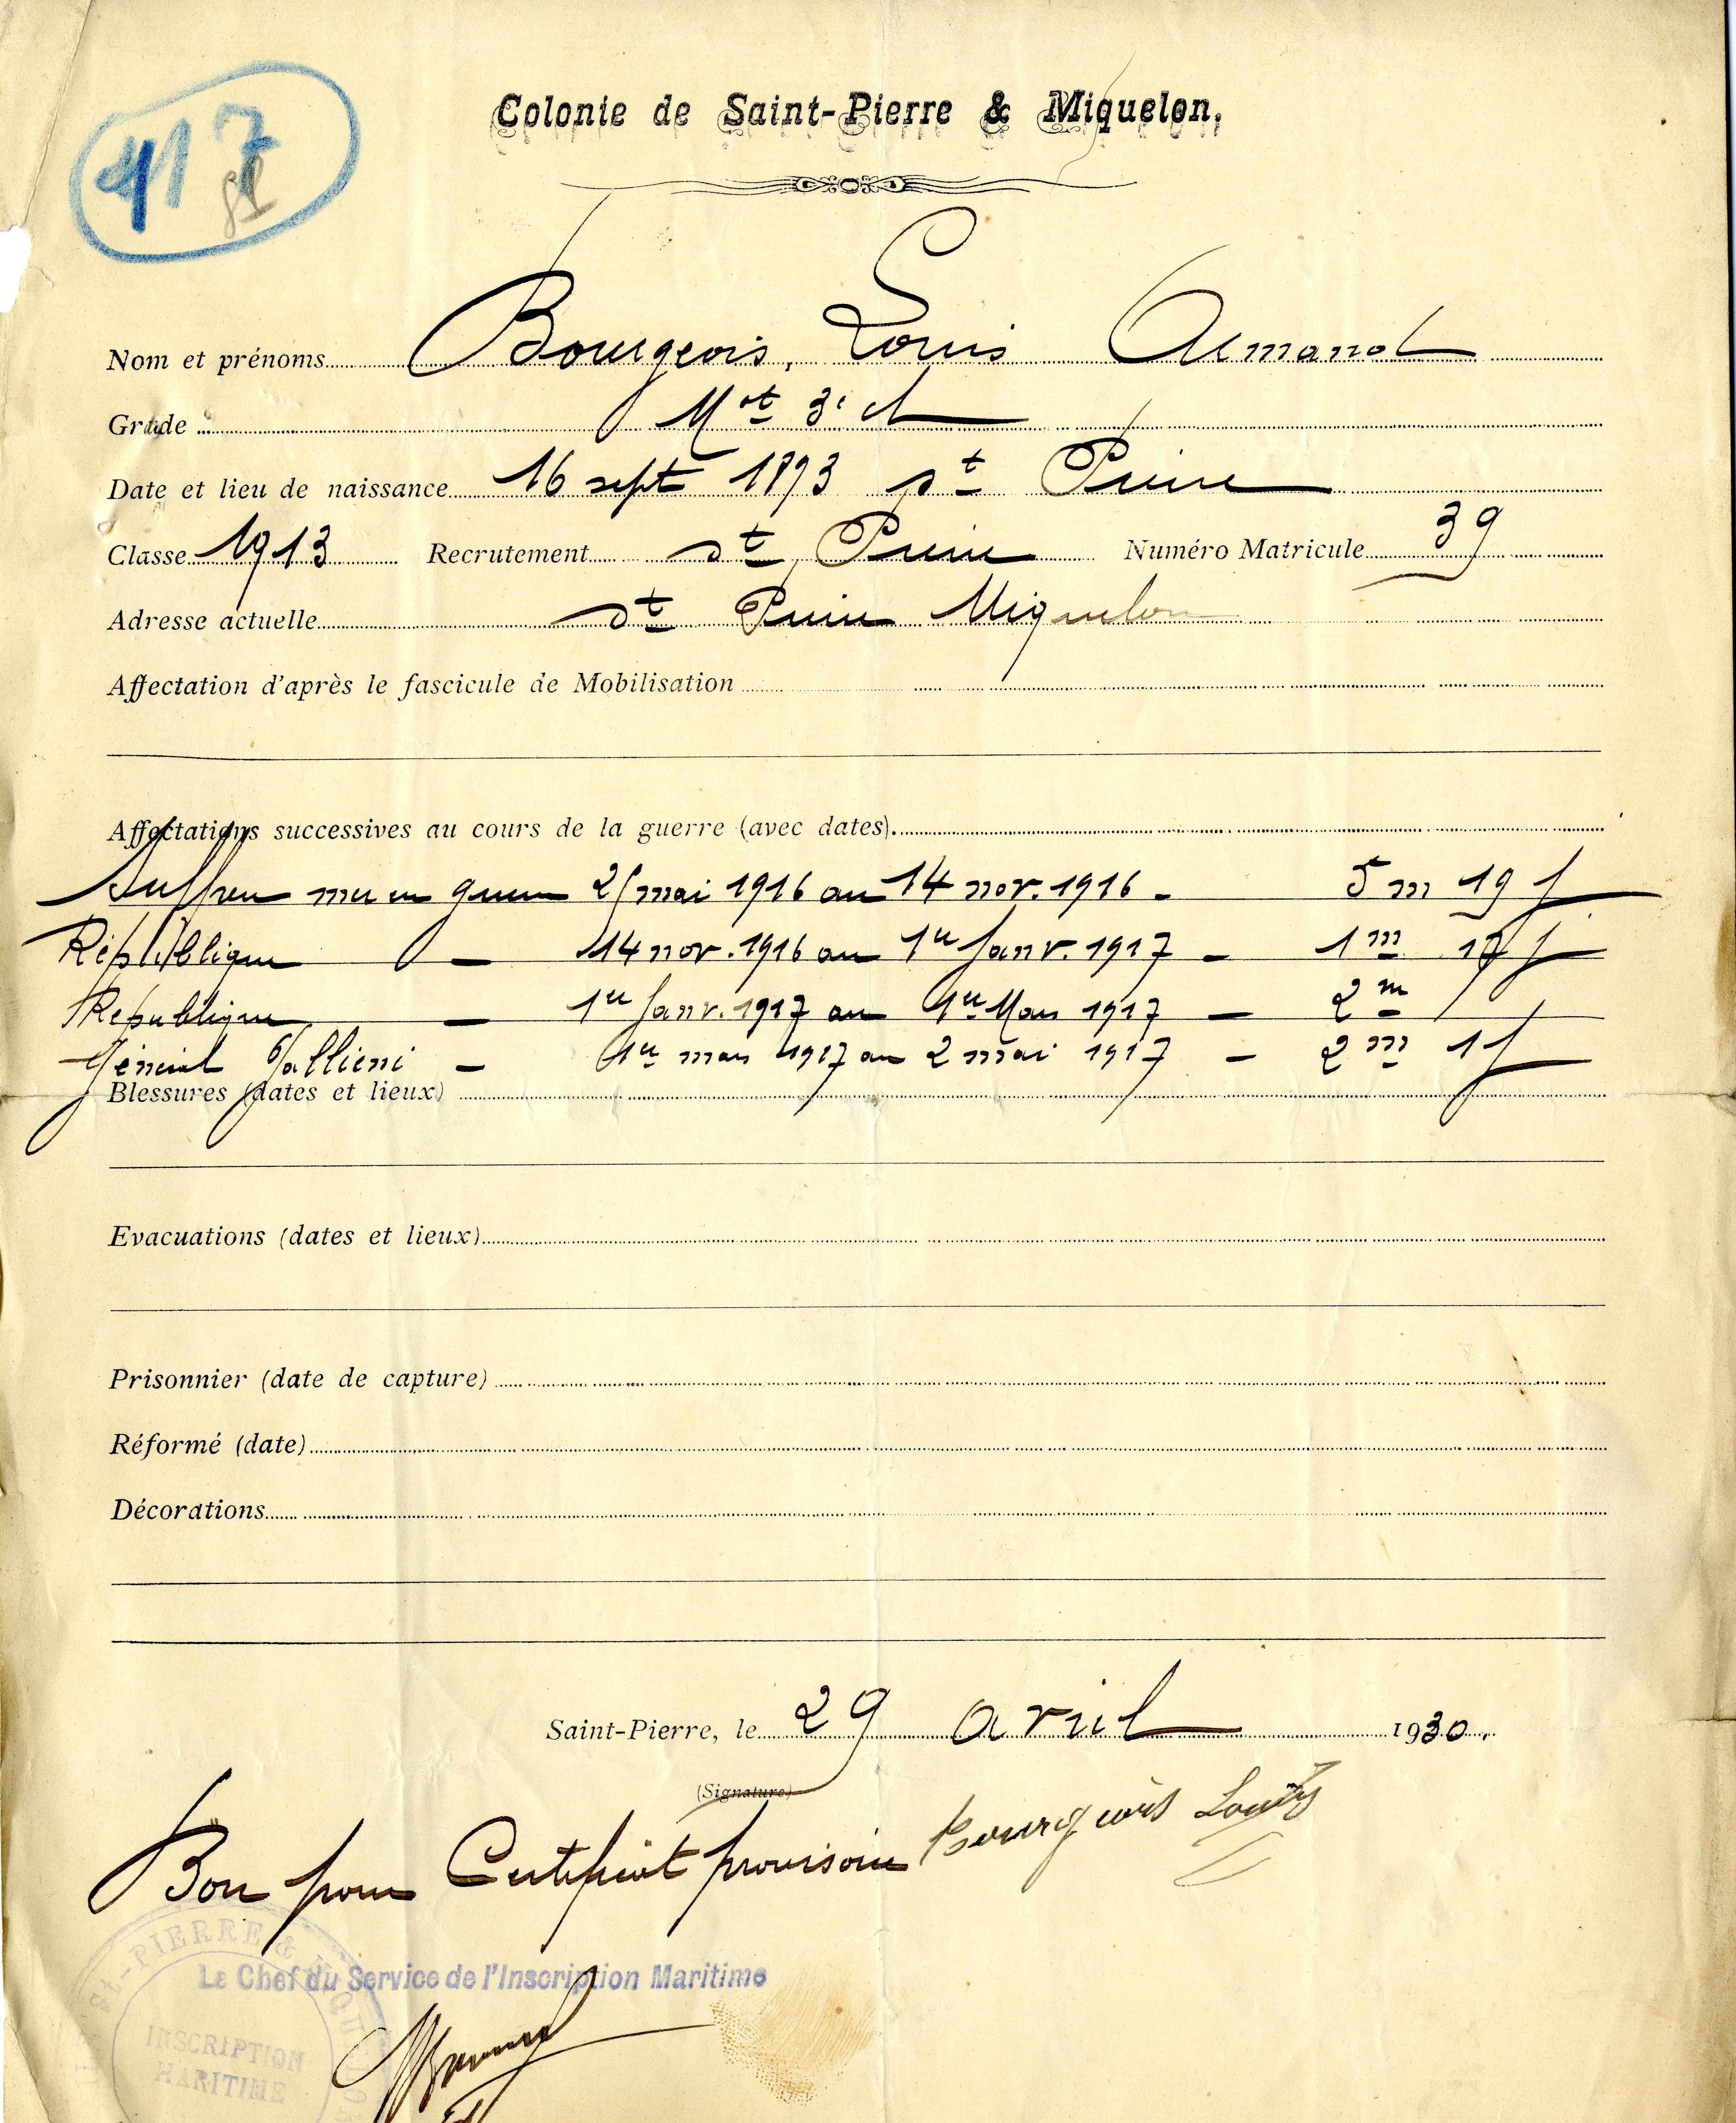 417
Colonie de Saint-Pierre & Miquelon.
Nom et prénoms Bourgeois, Louis Armand
Grade Mot 3e cl
Date et lieu de naissance 16 sept 1893 St Pierre
Classe 1913 Recrutement St Pierre Numéro Matricule 39
Adresse actuelle St Pierre Miquelon
Affectation d'après le fascicule de Mobilisation
Affectations successives au cours de la guerre (avec dates).
Suffren mer en guerre mai 1916 au 14 nov. 1916 - 5 m 19 j
République — 14 nov. 1916 au 1er Janv. 1917 - 1 m 17 j
République — 1er Janv. 1917 au 1er Mars 1917 — 2 m
Général Galliéni — 1er mars 1917 au 2 mai 1917 - 2 m 1 j
Blessures (dates et lieux)
Evacuations (dates et lieux)
Prisonnier (date de capture)
Réformé (date)
Décorations
Saint-Pierre, le 29 avril 1930.
(Signature)
Bourgeois Louis
Bon pour Certificat provisoire
Le Chef du Service de l'Inscription Maritime
St-PIERRE & MIQUELON
INSCRIPTION
MARITIME